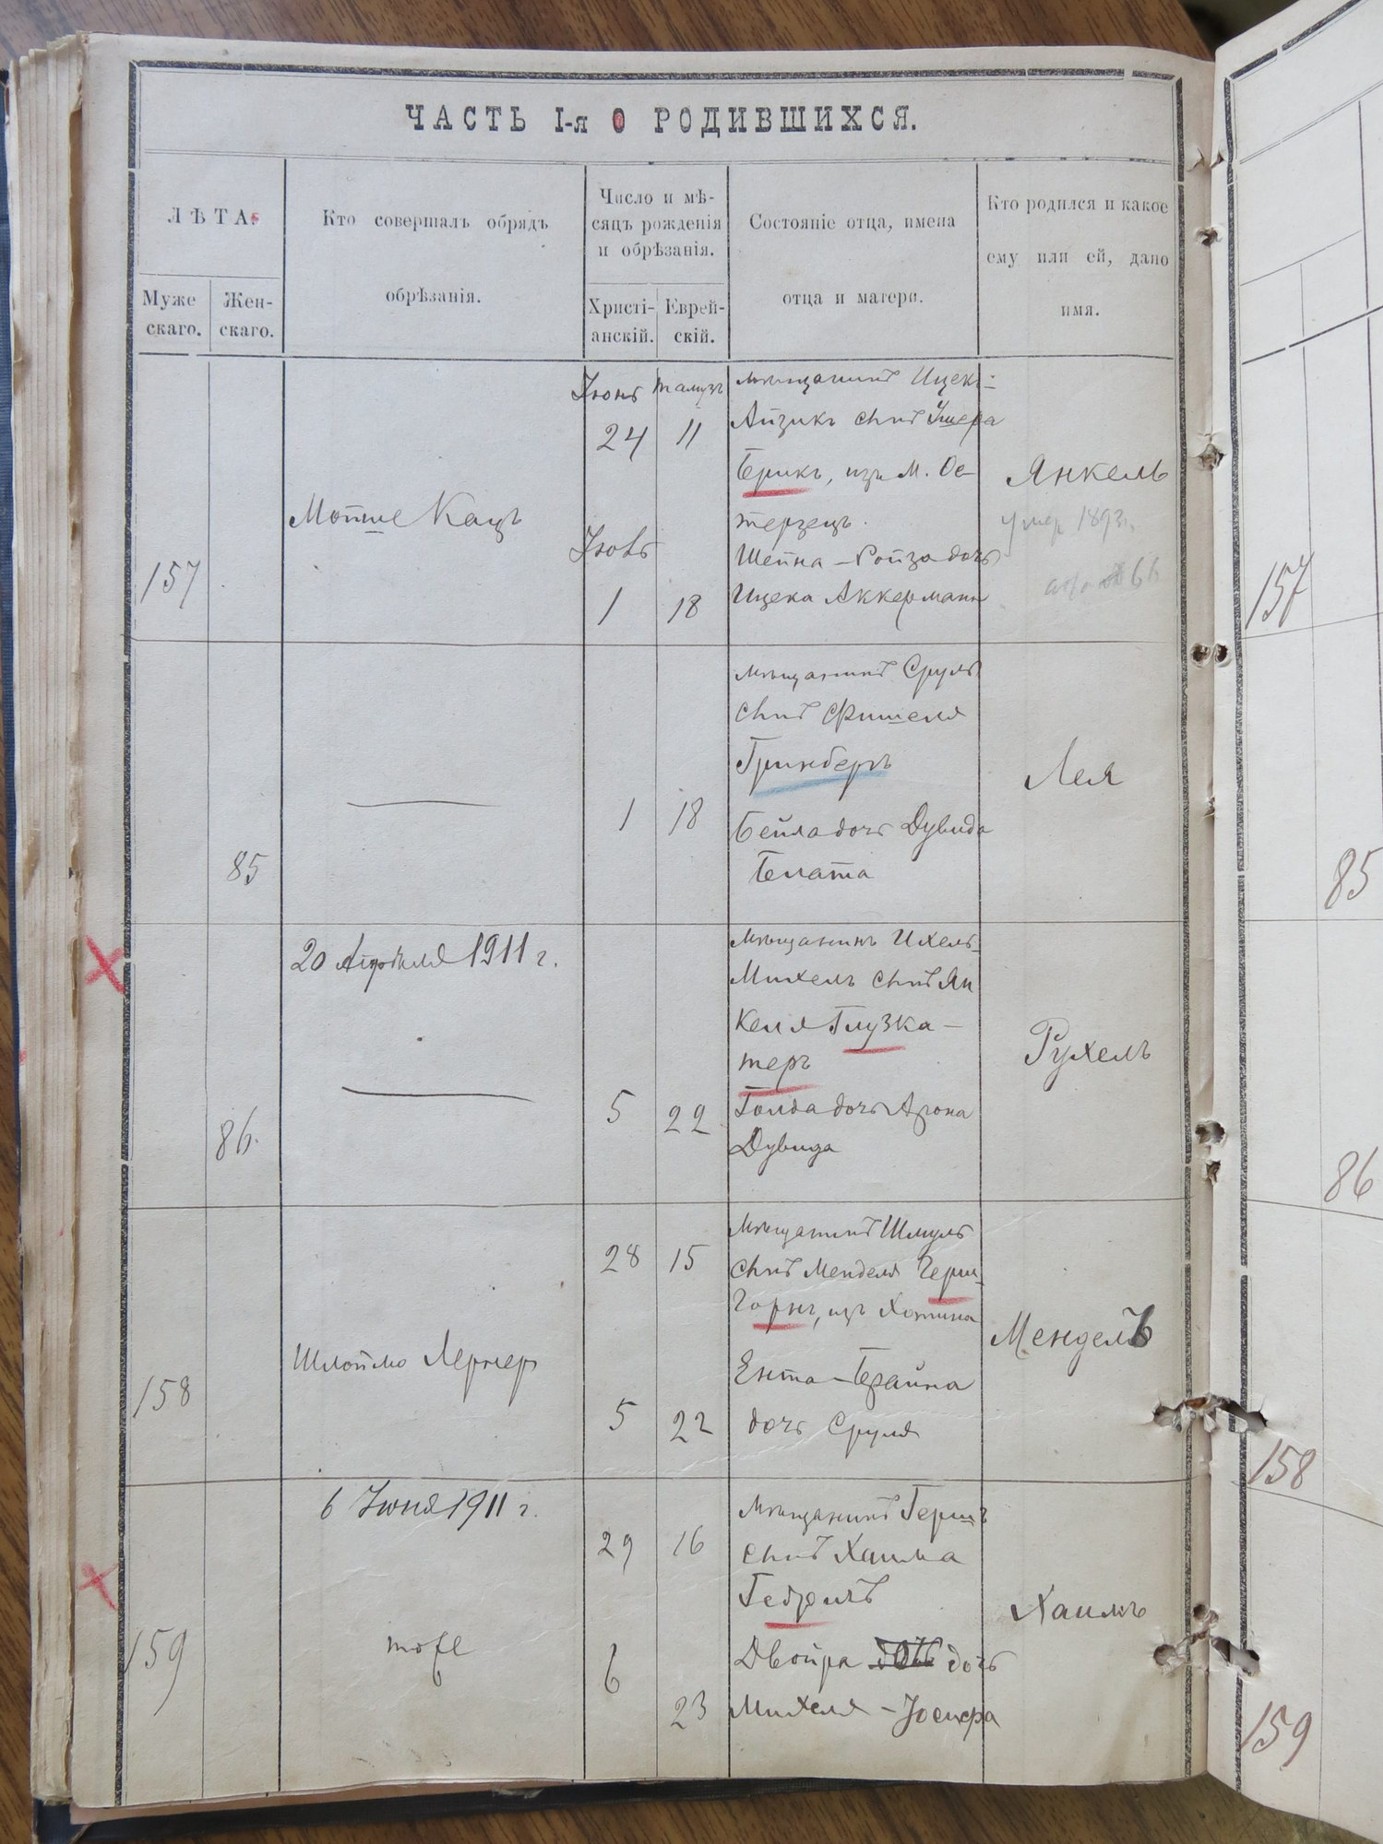 ЧАСТЬ I-я О РОДИВШИХСЯ.
ЛѢТА.
Муже
скаго.
Жен-
скаго.
Кто совершалъ обрядъ
обрѣзанія.
Число и мѣ-
сяцъ рожденія
и обрѣзанія.
Христі-
анскій.
Еврей-
скій.
Состояніе отца, имена
отца и матери.
Кто родился и какое
ему или ей, дано
имя.
157
Мотше Кацъ
Іюнь Тамузъ
24 11
Іюль
1 18
мѣщанинъ Ицекъ-
Айзикъ сынъ Ушера
Брикъ, изъ м. Ос-
Шейна-Ройза дочь
Ицека Аккерманъ
Янкель
умер 1893г.
157
85
1 18
мѣщанинъ Сруль
сынъ Фишеля
Гринберъ
Бейла дочь Дувида
Лея
85
86.
20 Апрѣля 1911 г.
5 22
Мѣщанинъ Ихель-
Михель сынъ Ян
келя Глузка-
теръ
Голда дочь Арона
Дувида
Рухель
86
158
Шлоймо Лернер
28 15
5 22
Мѣщанинъ Шмуль
сынъ Менделя
изъ Хотина
Ента-Брайна
дочь Сруля
Мендель
158
159
6 Іюня 1911 г.
тоже
29 16
6
23
Мѣщанинъ Гершъ
сынъ Хаима
Двойра дочь дочь
Михеля-Іосифа
Хаимъ
159